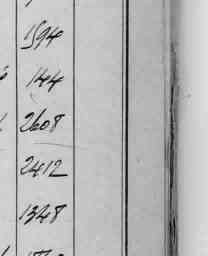 1594
144
2608
2412
1348